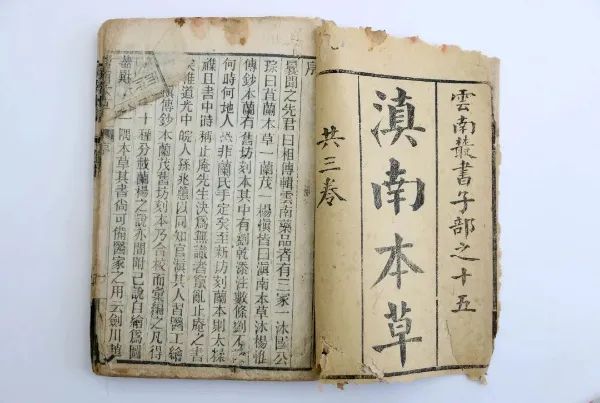 雲南叢書子部之十五
滇南本草
共三卷
序
曩聞之先君曰相傳輯雲南藥品者有三家一沐國公
琮曰苴蘭本草一蘭茂一楊慎皆曰滇南本草沐楊惟
傳鈔本蘭有舊坊刻本其中有劉乾添注數條劉
何時何地人然非蘭氏手定矣至新坊刻蘭本則太
雜且書中時稱止庵先生決為無識者竄亂止庵之書
矣惟道光中皖人孫兆蕙以同知官滇其人習醫工繪
傳鈔本蘭茂舊坊刻本乃合校而彙編之凡得
十種分載蘭楊之說亦間附己說自繪為圖
隅本草其書尚可備醫家之用云劍川趙